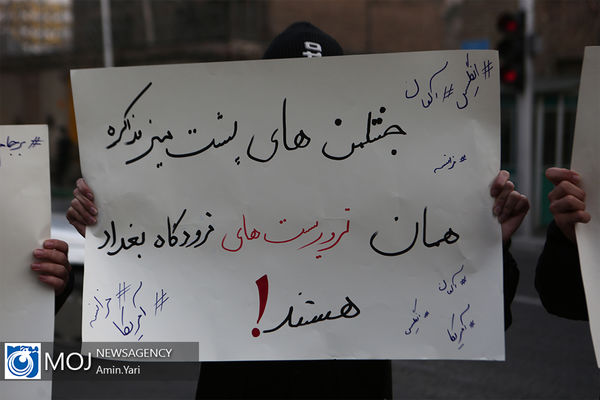 #انگلیس
#آلمان
#فرانسه
جنتلمن های پشت میز مذاکره
همان تروریست های فرودگاه بغداد
هستند!
#فرانسه
#آمریکا
#آلمان
#انگلیس
#آمریکا
#برجام
MOJ NEWSAGENCY
Amin.Yari